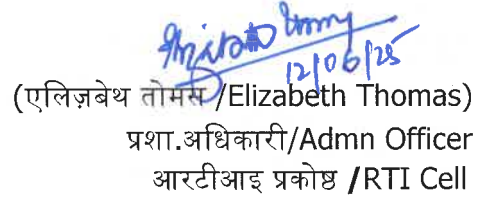 Elizabeth Thomas
12/06/25
(एलिज़बेथ तोमस /Elizabeth Thomas)
प्रशा.अधिकारी/Admn Officer
आरटीआइ प्रकोष्ठ /RTI Cell